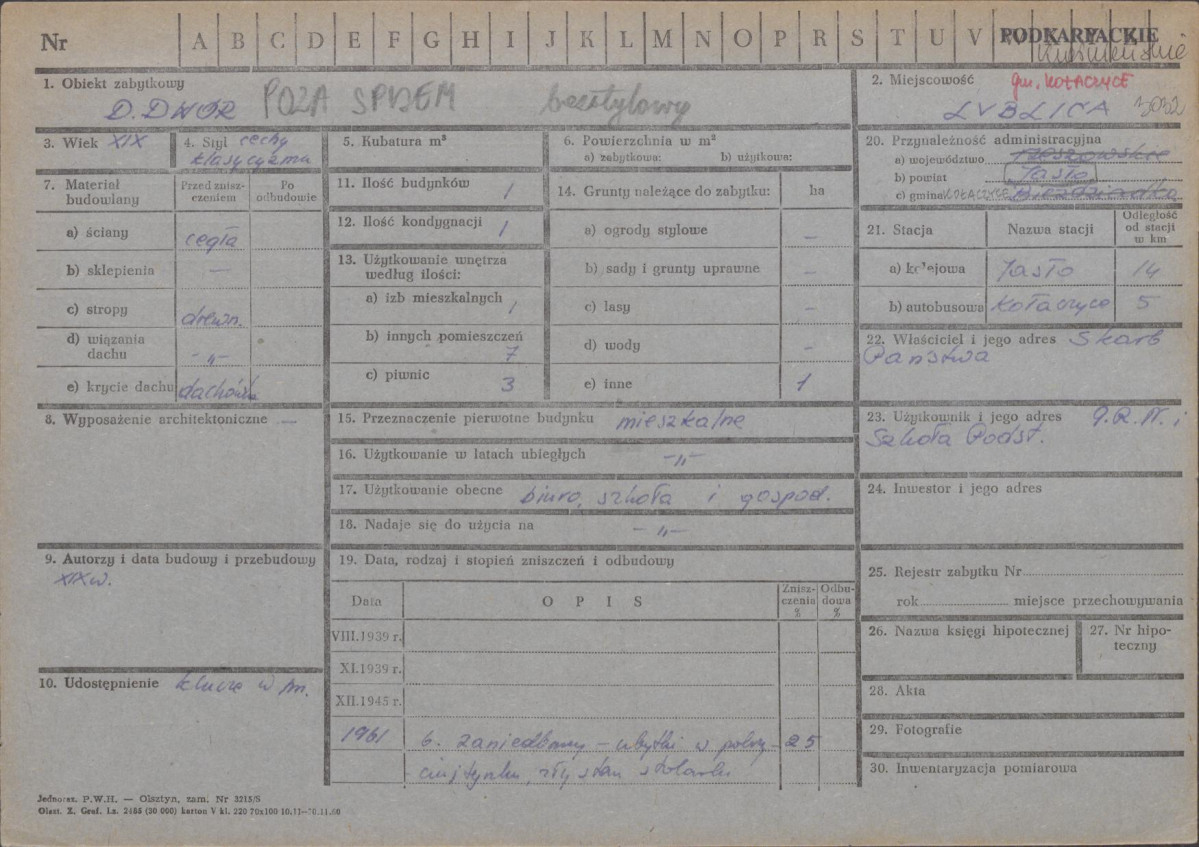 Nr A B C D E F G H I J K L M N O P R S T U V PODKARPACKIE
1. Obiekt zabytkowy
D. DWÓR POZA SPISEM bezstylowy
2. Miejscowość gm. KOŁACZYCE
LUBLICA 3032
3. Wiek XIX
4. Styl cechy
klasycyzmu
5. Kubatura m³
6. Powierzchnia w m²
a) zabytkowa: b) użytkowa:
7. Materiał budowlany
Przed zniszczeniem
Po odbudowie
a) ściany cegła
b) sklepienia —
c) stropy drewn.
d) wiązania dachu —„—
e) krycie dachu
8. Wyposażenie architektoniczne —
9. Autorzy i data budowy i przebudowy
XIX w.
10. Udostępnienie klucze w
11. Ilość budynków 1
12. Ilość kondygnacji 1
13. Użytkowanie wnętrza według ilości:
a) izb mieszkalnych 1
b) innych pomieszczeń 7
c) piwnic 3
14. Grunty należące do zabytku: ha
a) ogrody stylowe —
b) sady i grunty uprawne —
c) lasy —
d) wody —
e) inne 1
15. Przeznaczenie pierwotne budynku mieszkalne
16. Użytkowanie w latach ubiegłych —„—
17. Użytkowanie obecne biuro, szkoła i gospod.
18. Nadaje się do użycia na —„—
19. Data, rodzaj i stopień zniszczeń i odbudowy
Data O P I S Zniszczenia % Odbudowa %
VIII.1939 r.
XI.1939 r.
XII.1945 r.
1961 b. zaniedbany – ubytki w 25
zły stan
20. Przynależność administracyjna
a) województwo rzeszowskie
b) powiat Jasło
c) gmina KOŁACZYCE
21. Stacja Nazwa stacji Odległość od stacji w km
a) kolejowa Jasło 14
b) autobusowa Kołaczyce 5
22. Właściciel i jego adres Skarb
Państwa
23. Użytkownik i jego adres G.R.N. i
Szkoła Podst.
24. Inwestor i jego adres
25. Rejestr zabytku Nr
rok miejsce przechowywania
26. Nazwa księgi hipotecznej
27. Nr hipoteczny
28. Akta
29. Fotografie
30. Inwentaryzacja pomiarowa
Jednoraz. P.W.H. — Olsztyn, zam. Nr 3215/S